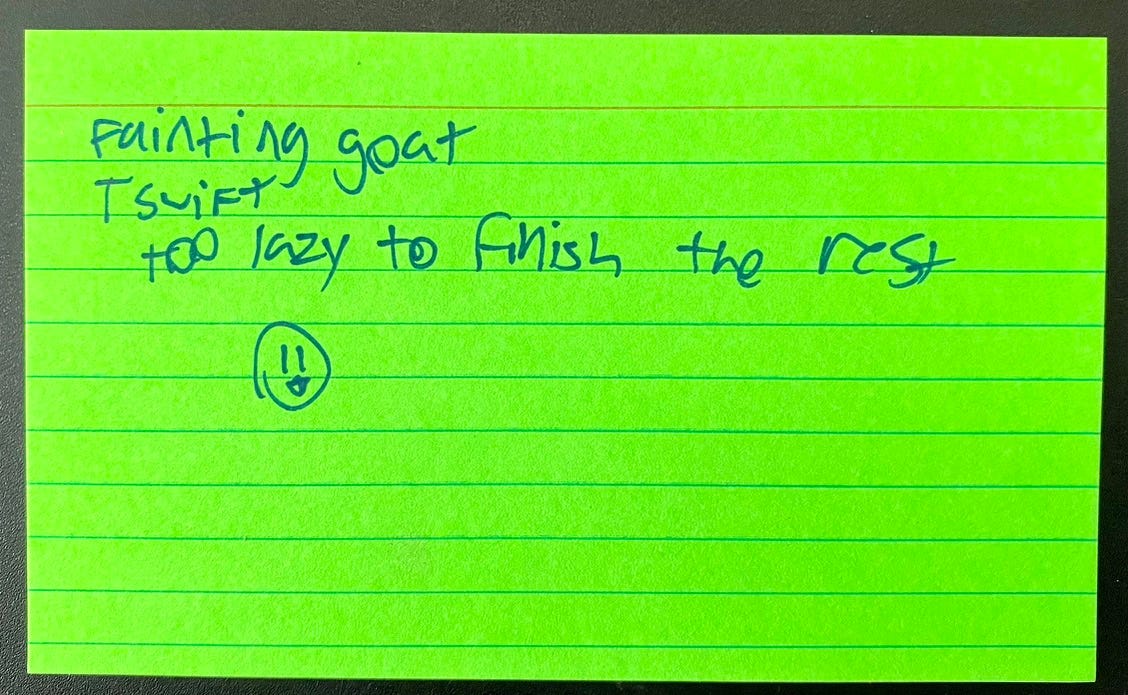 Fainting goat
T Swift
too lazy to finish the rest